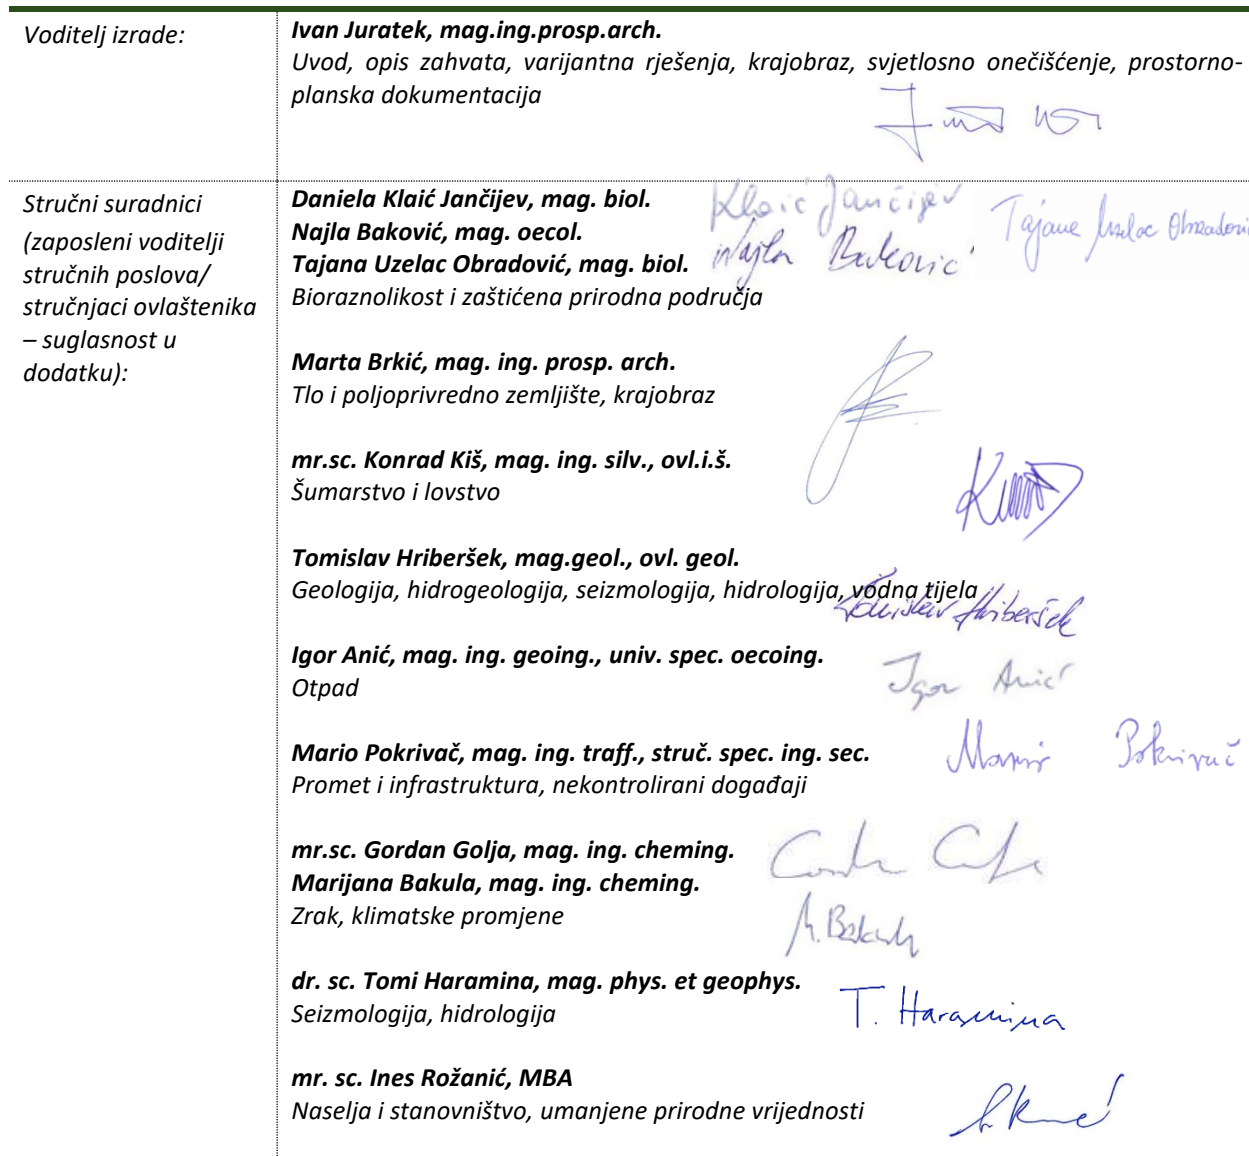 Voditelj izrade:
Ivan Juratek, mag.ing.prosp.arch.
Uvod, opis zahvata, varijantna rješenja, krajobraz, svjetlosno onečišćenje, prostorno-
planska dokumentacija
Stručni suradnici
(zaposleni voditelji
stručnih poslova/
stručnjaci ovlaštenika
– suglasnost u
dodatku):
Daniela Klaić Jančijev, mag. biol.
Klaić Jančijev
Najla Baković, mag. oecol.
Najla Baković
Tajana Uzelac Obradović, mag. biol.
Tajana Uzelac Obradović
Bioraznolikost i zaštićena prirodna područja
Marta Brkić, mag. ing. prosp. arch.
Tlo i poljoprivredno zemljište, krajobraz
mr.sc. Konrad Kiš, mag. ing. silv., ovl.i.š.
Šumarstvo i lovstvo
Tomislav Hriberšek, mag.geol., ovl. geol.
Geologija, hidrogeologija, seizmologija, hidrologija, vodna tijela
Tomislav Hriberšek
Igor Anić, mag. ing. geoing., univ. spec. oecoing.
Otpad
Igor Anić
Mario Pokrivač, mag. ing. traff., struč. spec. ing. sec.
Mario Pokrivač
Promet i infrastruktura, nekontrolirani događaji
mr.sc. Gordan Golja, mag. ing. cheming.
Marijana Bakula, mag. ing. cheming.
Zrak, klimatske promjene
M. Bakula
dr. sc. Tomi Haramina, mag. phys. et geophys.
Seizmologija, hidrologija
T. Haramina
mr. sc. Ines Rožanić, MBA
Naselja i stanovništvo, umanjene prirodne vrijednosti